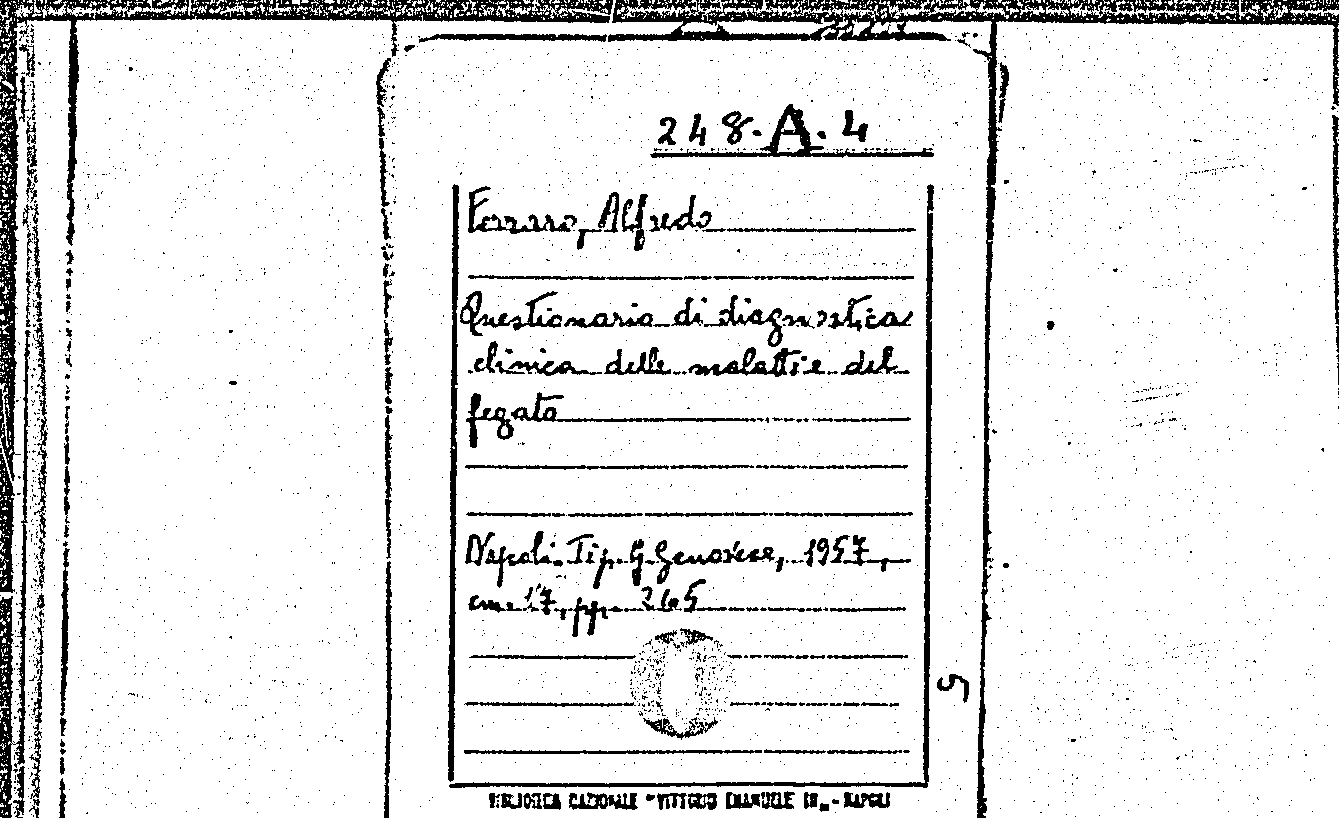 248.A.4
Ferraro, Alfredo
Questionario di diagnostica
clinica delle malattie del
fegato
Napoli. Tip. G. Genovese, 1957,
cm. 17, pp. 265
5
BIBLIOTECA NAZIONALE "VITTORIO EMANUELE III„ - NAPOLI